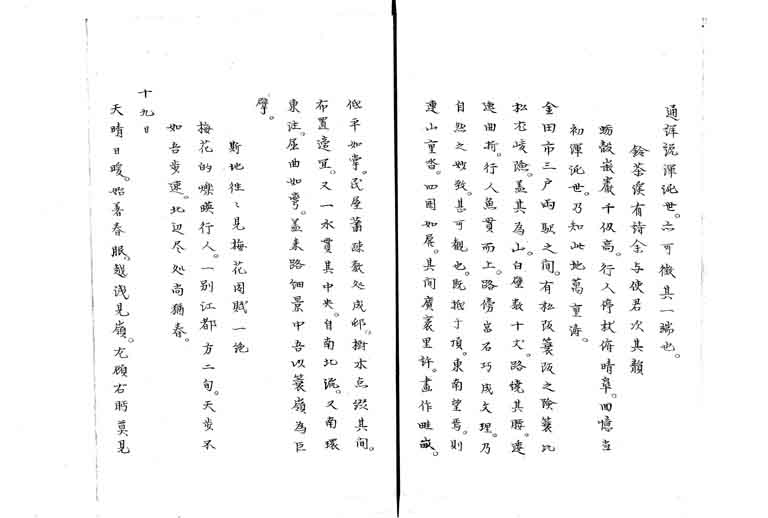 通詳説渾沌世。亦可徴其一端也。
鈴茶溪有詩余与使君次其韻
蛎殻嵌巌千仭高。行人停杖俯晴皐。回憶当
初渾沌世。乃知此地萬重濤。
金田市三戸両駅之間。有松阪蓑阪之険蓑比
松尤峻険。蓋其為山。白壁数十丈。路繞其腰。邊
曲折。行人魚貫而上。路傍岩石巧成文理。乃
自然之妙致。甚可観也。既拠于頂。東南望焉。則
連山重沓。四囲如屏。其間廣袤里許。畫作畦畝。
低平如掌。民屋蕭疎数処成邨。樹木点綴其間。
布置適宜。又一水貫其中央。自南北流。又南環
東注。屈曲如彎。蓋来路佃景中吾以蓑嶺為巨
擘。
斯地往々見梅花因賦一絶
梅花的皪暎行人。一別江都方二旬。天歩不
如吾歩速。北辺尽処尚猶春。
十九日
天晴日暖。始著春服。越浅見嶺。左顧右眄莫見